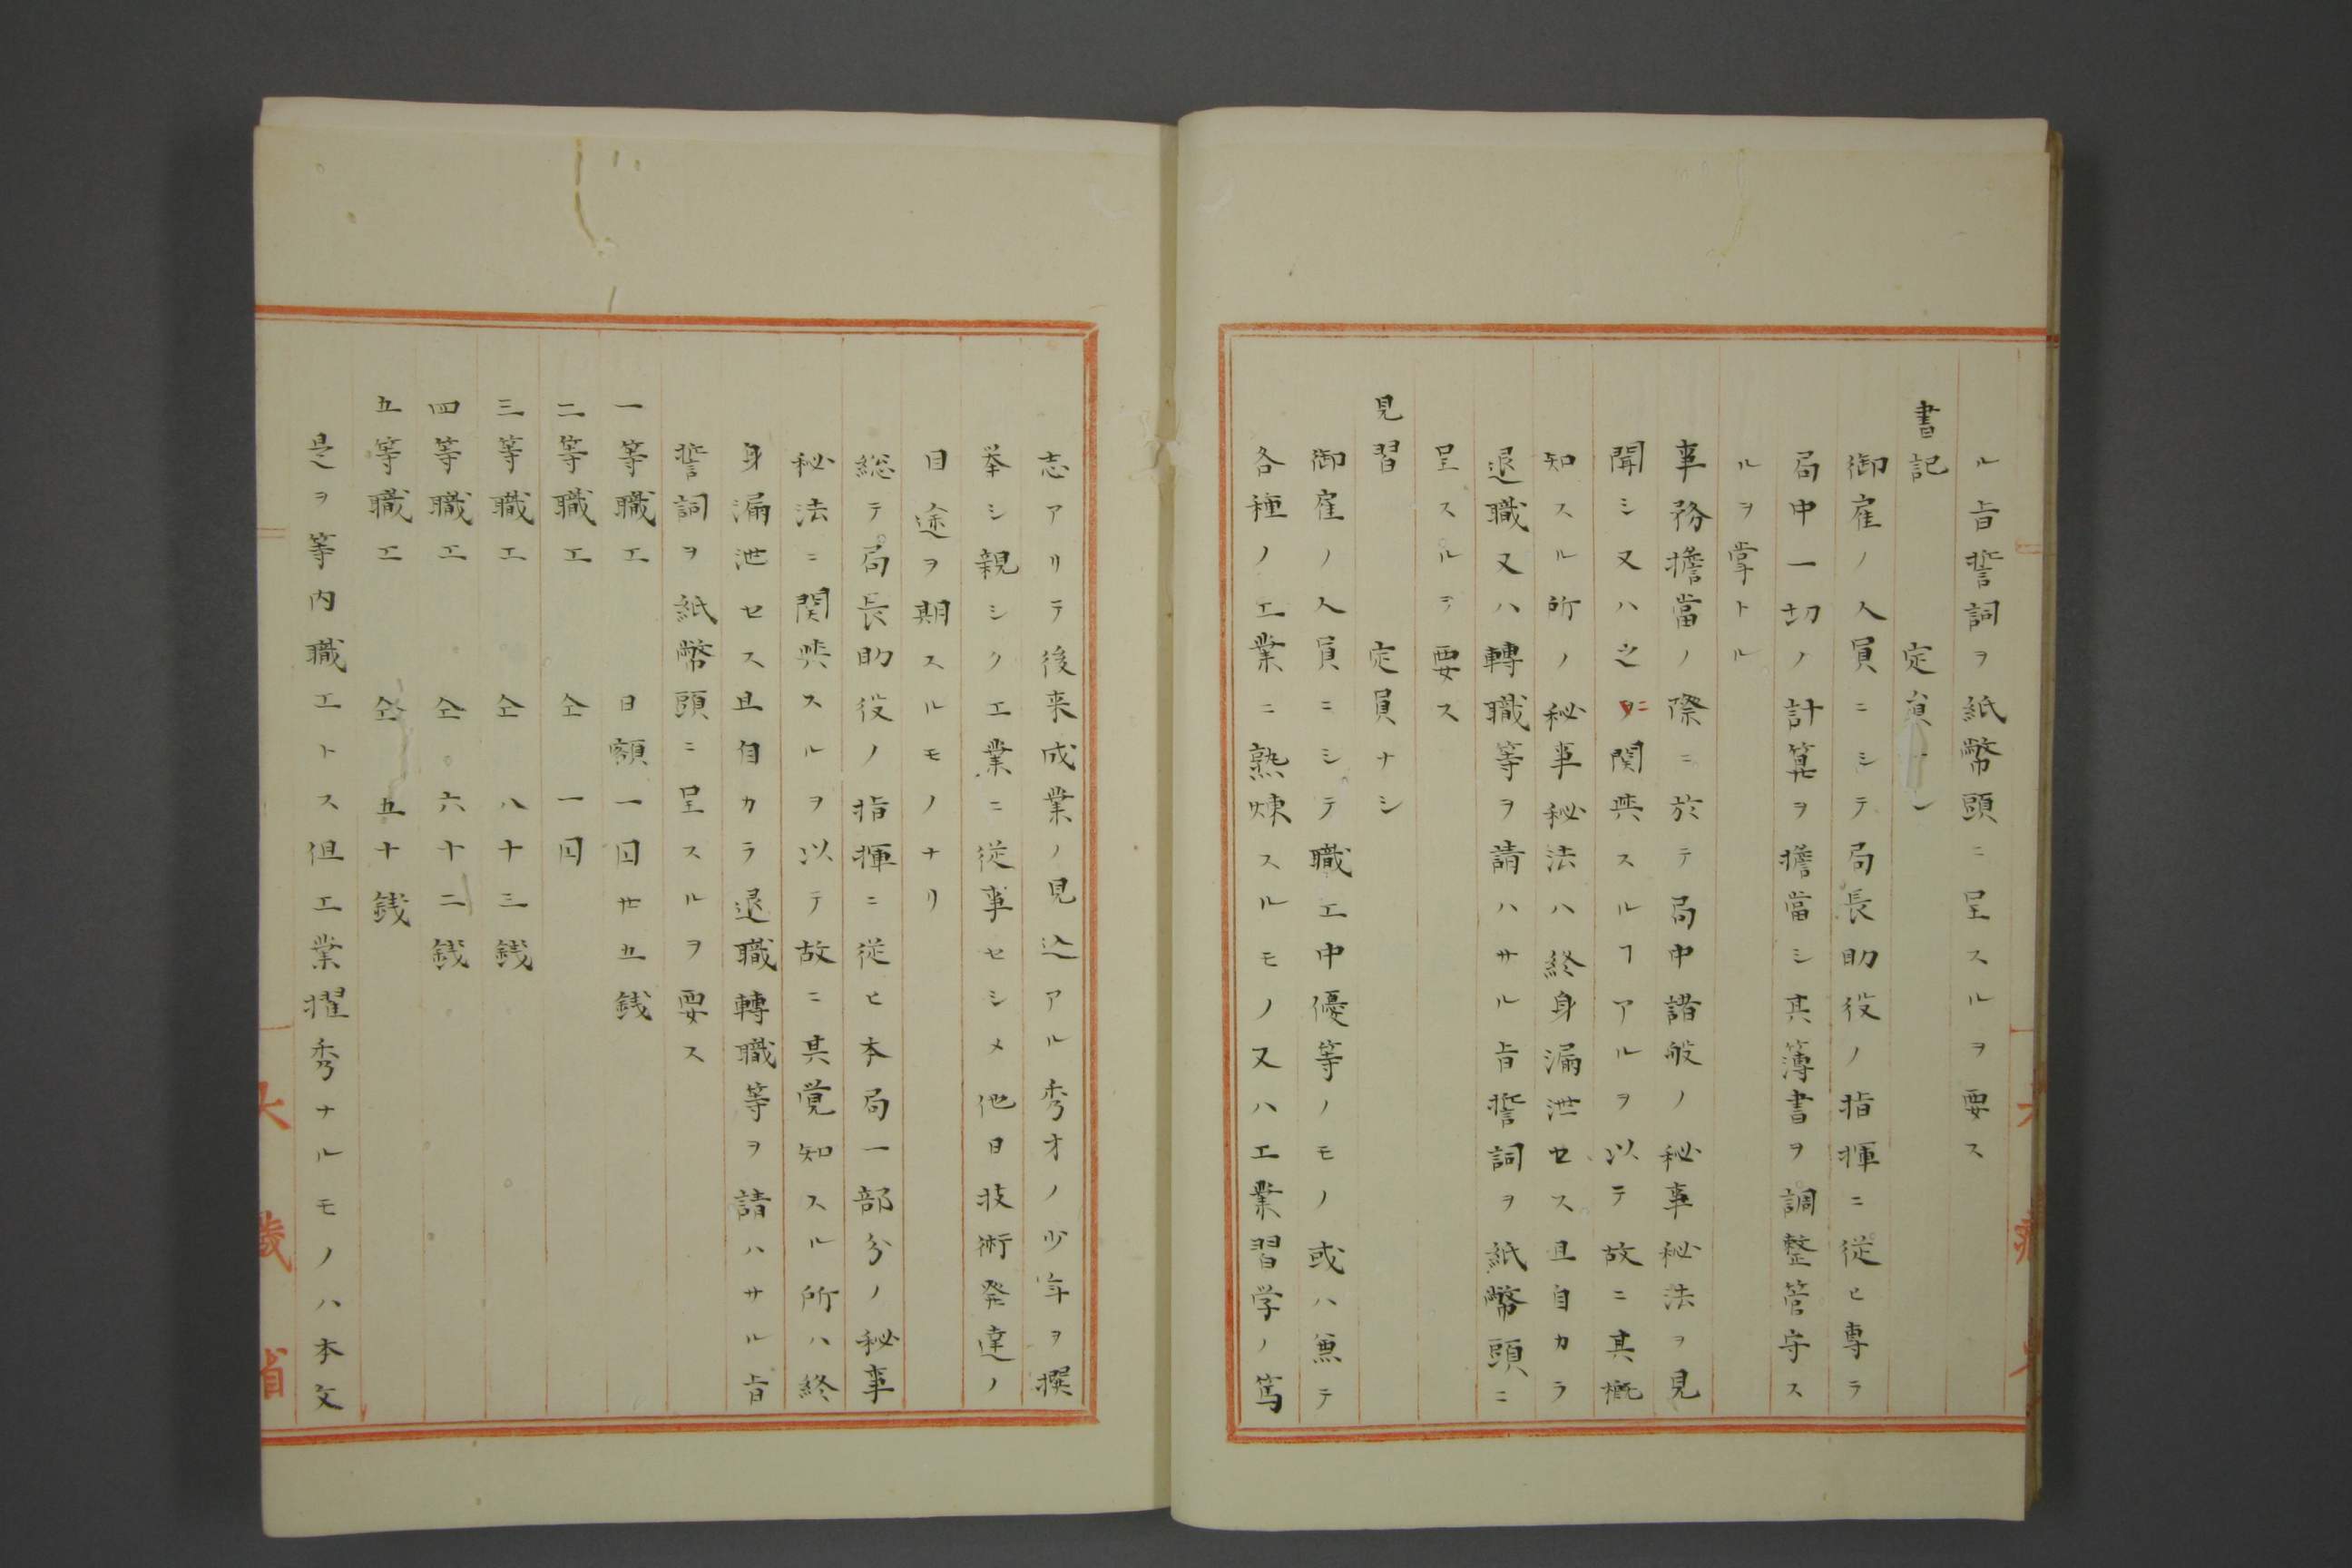 ル旨誓詞ヲ紙幣頭ニ呈スルヲ要ス
書記 定員ナシ
御雇ノ人員ニシテ局長助役ノ指揮ニ従ヒ専ラ
局中一切ノ計算ヲ擔當シ其簿書ヲ調整管守ス
ルヲ掌トル
事務擔當ノ際ニ於テ局中諸般ノ秘事秘法ヲ見
聞シ又ハ之ニ関與スルヿアルヲ以テ故ニ其概
知スル所ノ秘事秘法ハ終身漏泄セス且自カラ
退職又ハ轉職等ヲ請ハサル旨誓詞ヲ紙幣頭ニ
呈スルヲ要ス
見習 定員ナシ
御雇ノ人員ニシテ職工中優等ノモノ或ハ兼テ
各種ノ工業ニ熟煉スルモノ又ハ工業習学ノ篤
志アリテ後来成業ノ見込アル秀才ノ少年ヲ撰
挙シ親シク工業ニ従事セシメ他日技術発達ノ
目途ヲ期スルモノナリ
総テ局長助役ノ指揮ニ従ヒ本局一部分ノ秘事
秘法ニ関與スルヲ以テ故ニ其覚知スル所ハ終
身漏泄セス且自カラ退職轉職等ヲ請ハサル旨
誓詞ヲ紙幣頭ニ呈スルヲ要ス
一等職工 日額一円廿五銭
二等職工 仝 一円
三等職工 仝 八十三銭
四等職工 仝 六十二銭
五等職工 仝 五十銭
是ヲ等内職工トス但工業擢秀ナルモノハ本文
大蔵省